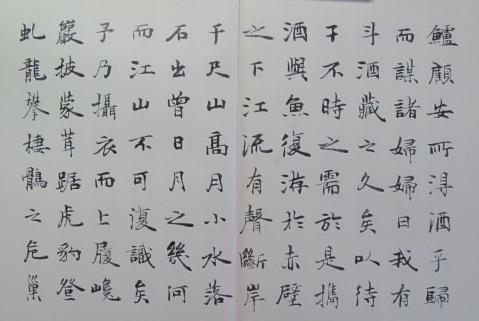 鱸顧安所得酒乎歸
而謀諸婦婦曰我有
斗酒藏之久矣以待
子不時之需於是攜
酒與魚復游於赤壁
之下江流有聲斷岸
千尺山高月小水落
石出曾日月之幾何
而江山不可復識矣
予乃攝衣而上履巉
巖披蒙茸踞虎豹登
虬龍攀棲鶻之危巢